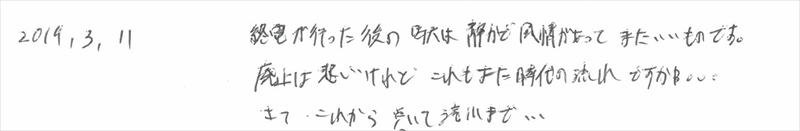 2019, 3, 11 終電が行った後の駅は静かで風情があってまたいいものです。
廃止は悲しいけれど これもまた時代の流れですかね...
さて、これから歩いて滝川まで...